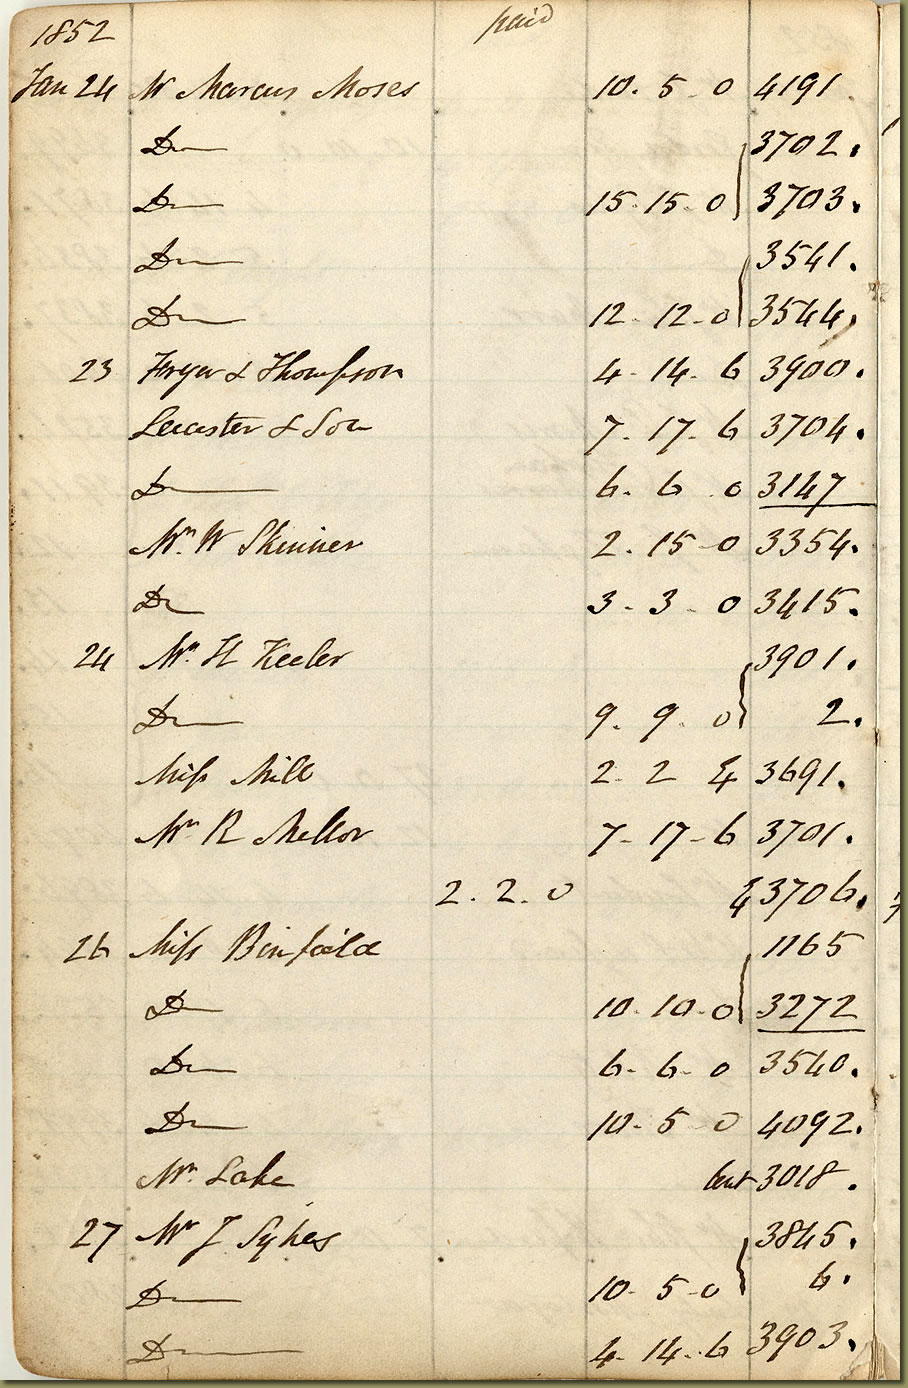 1852 paid
Jan 24 Mr Marcus Moses 10. 5 0 4191
Do 3702.
Do 15. 15. 0 3703.
Do 3541.
Do 12. 12. 0 3544.
23 & Thompson 4. 14. 6 3900.
Leicester & Son 7. 17. 6 3704.
Do 6. 6. 0 3147
Mr. W Skinner 2. 15 0 3354.
Do 3. 3. 0 3415.
24 Mr. H Keeler 3901.
Do 9. 9. 0 2.
Miss Mill 2 2 3691.
Mr R Mellor 7. 17. 6 3701.
2. 2. 0 3706.
26 Miss Binfield 1165
Do 10. 10. 0 3272
Do 6. 6. 0 3540.
Do 10. 5 0 4092.
Mr. Lake lent 3018.
27 Mr J Sykes 3845.
Do 10. 5. 0 6.
Do 4. 14. 6 3903.